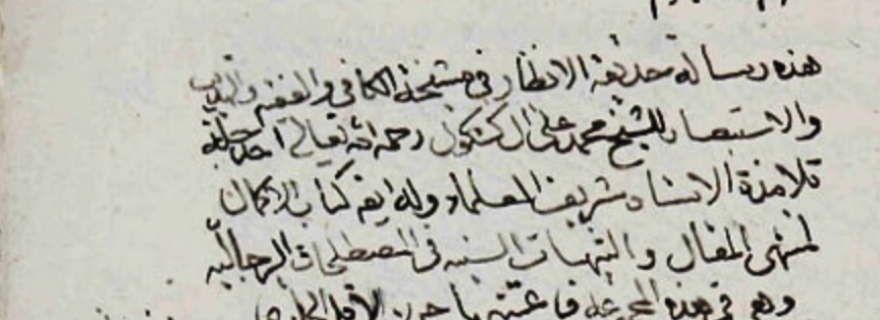 هذه رسالة حديقة الانظار في مشيخة الكافي والفقيه والتهذيب
والاستبصار للشيخ محمد علي ال كشكول رحمه الله تعالى احد اجلة
تلامذة الاستاد شريف العلماء وله ايض كتاب الاكمال
لمنتهى المقال والتنبيهات السنيه في المصطلحات الرجاليه
وهو في هذه المجموعه